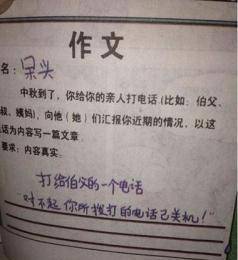 作文
名：呆头
中秋到了，你给你的亲人打电话(比如：伯父、
叔、姨妈)，向他（她）们汇报你近期的情况，以这
话为内容写一篇文章
要求：内容真实.
打给伯父的一个电话
“对不起你所拨打的电话已关机！”